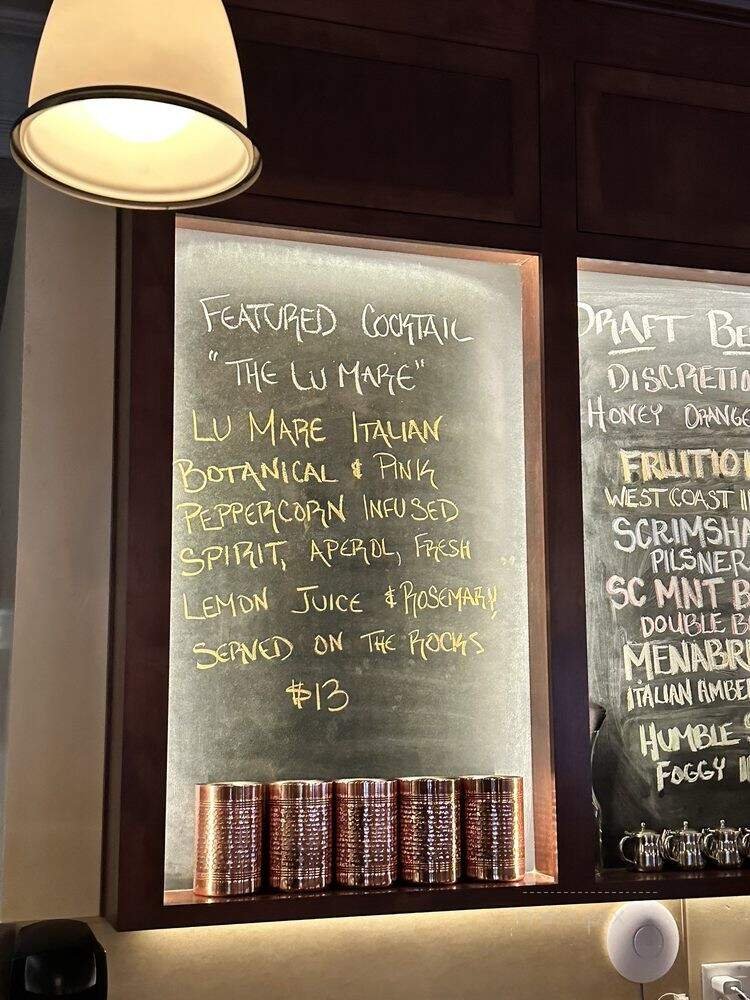 FEATURED COCKTAIL
"THE LU MARE"
LU MARE ITALIAN
BOTANICAL & PINK
PEPPERCORN INFUSED
SPIRIT, APEROL, FRESH
LEMON JUICE & ROSEMARY,
SERVED ON THE ROCKS
$13
DRAFT BE
DISCRETIO
HONEY ORANGE
FRUITION
WEST COAST I
SCRIMSHA
PILSNER
SC MNT B
DOUBLE B
MENABR
ITALIAN AMBE
HUMBLE
FOGGY I